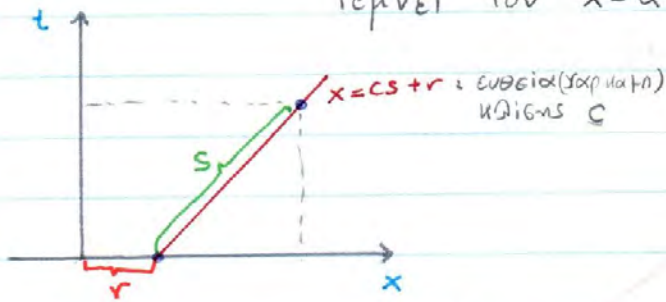 τέμνει τον x-α
t
x = cs + r : ευθεία (χαρ
κλίσης c
s
r
x